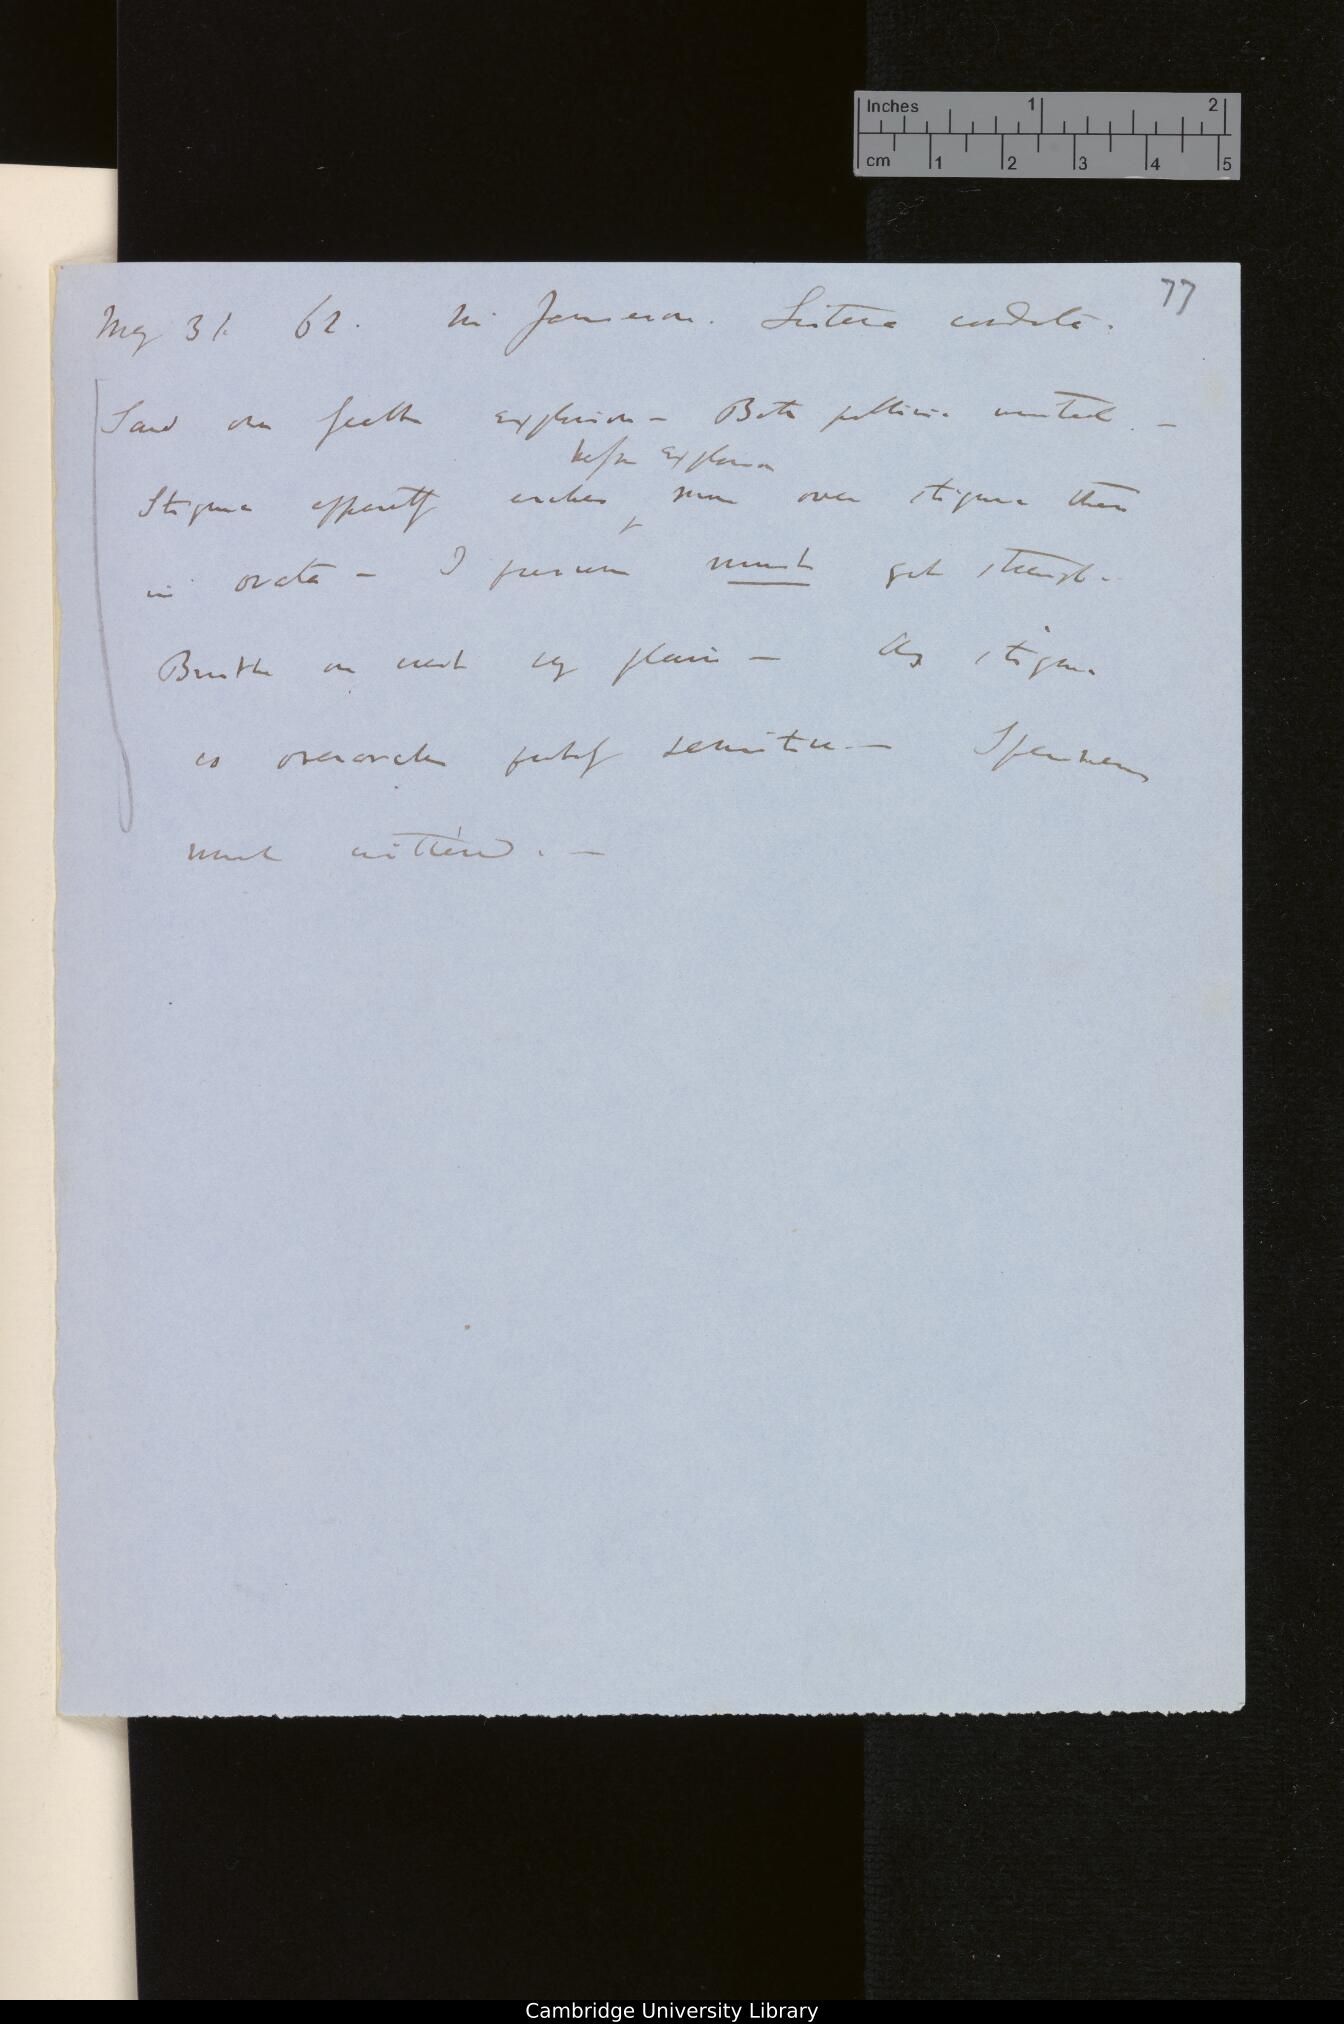 77
May 31 62. Mr Jamieson. Listera cordata.
Saw one feeble explosion — Both pollinia united. —
before explosion
Stigma apparently arches more over stigma than
in ovata — I presume must get straight.
on crest very plain — As stigma
is overarched probably sensitive — Specimens
much withered. —
Inches 1 2
cm 1 2 3 4 5
Cambridge University Library